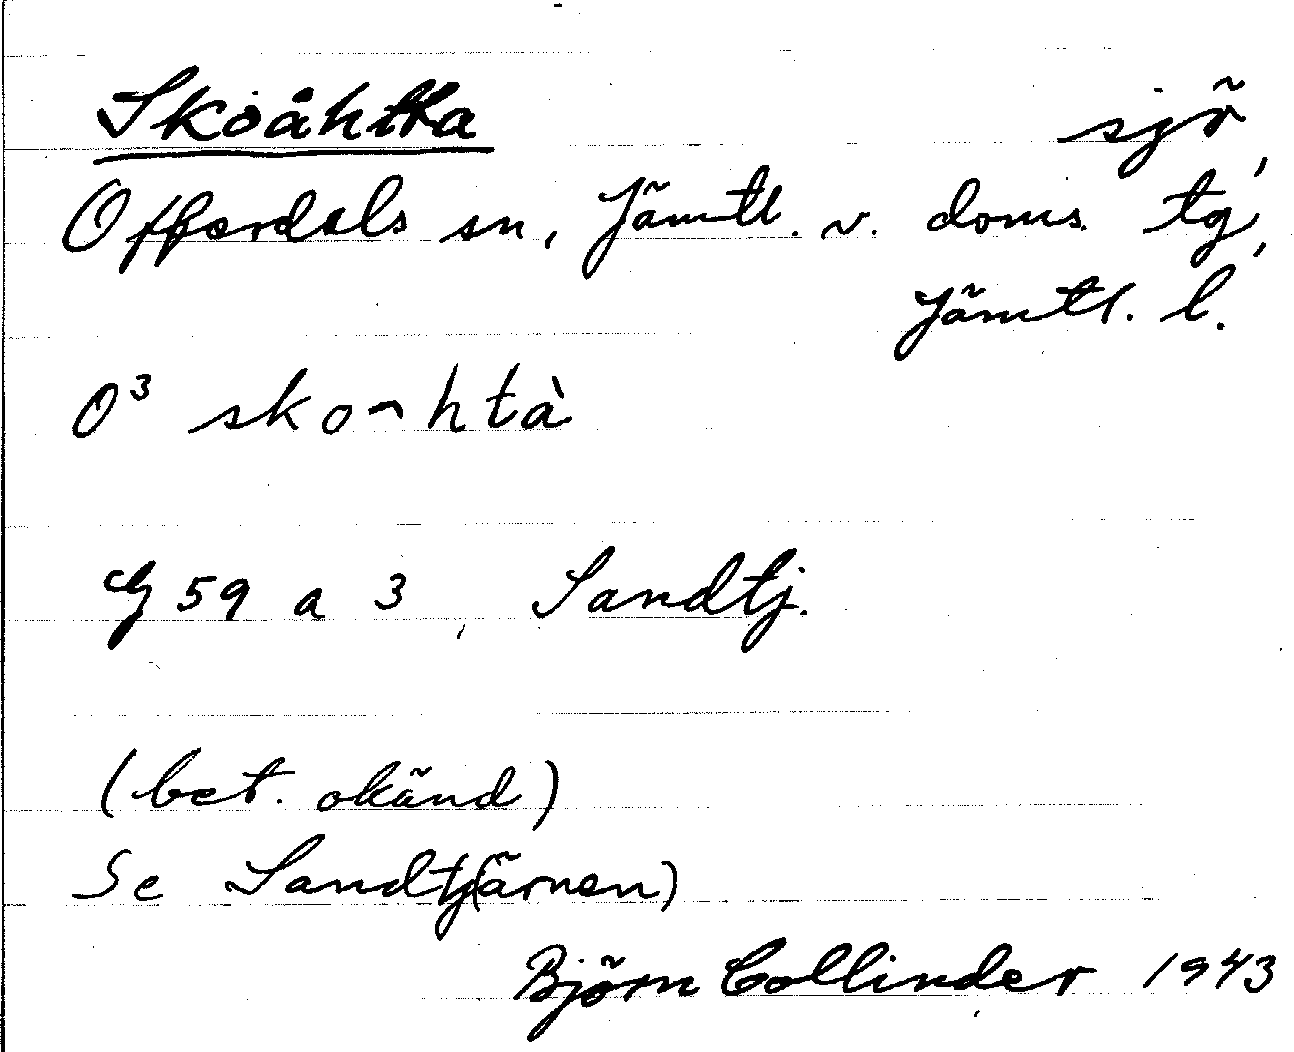 Skoåhtta sjö,
Offerdals sn, Jämtl. v. doms. tg,
Jämtl. l.
O³ sko⌢htà
G 59 a 3, Sandtj.
(bet. okänd)
Se Sandtj(ärnen)
Björn Collinder 1943